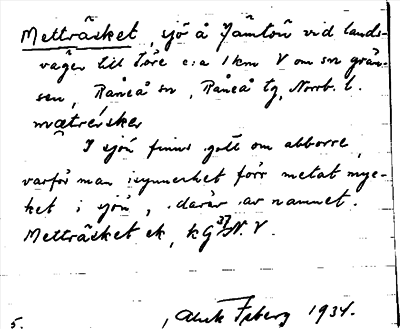 Metträsket, sjö å Jämtön vid lands-
vägen till Töre c:a 1 km V om sn grän-
sen, Råneå sn, Råneå tg, Norrb. l.
mætrésker
I sjön finns gott om abborre,
varför man isynnerhet förr metat myc-
ket i sjön, därav namnet.
Metträsket ek, kG 37 N.V.
5. Isberg 1934.